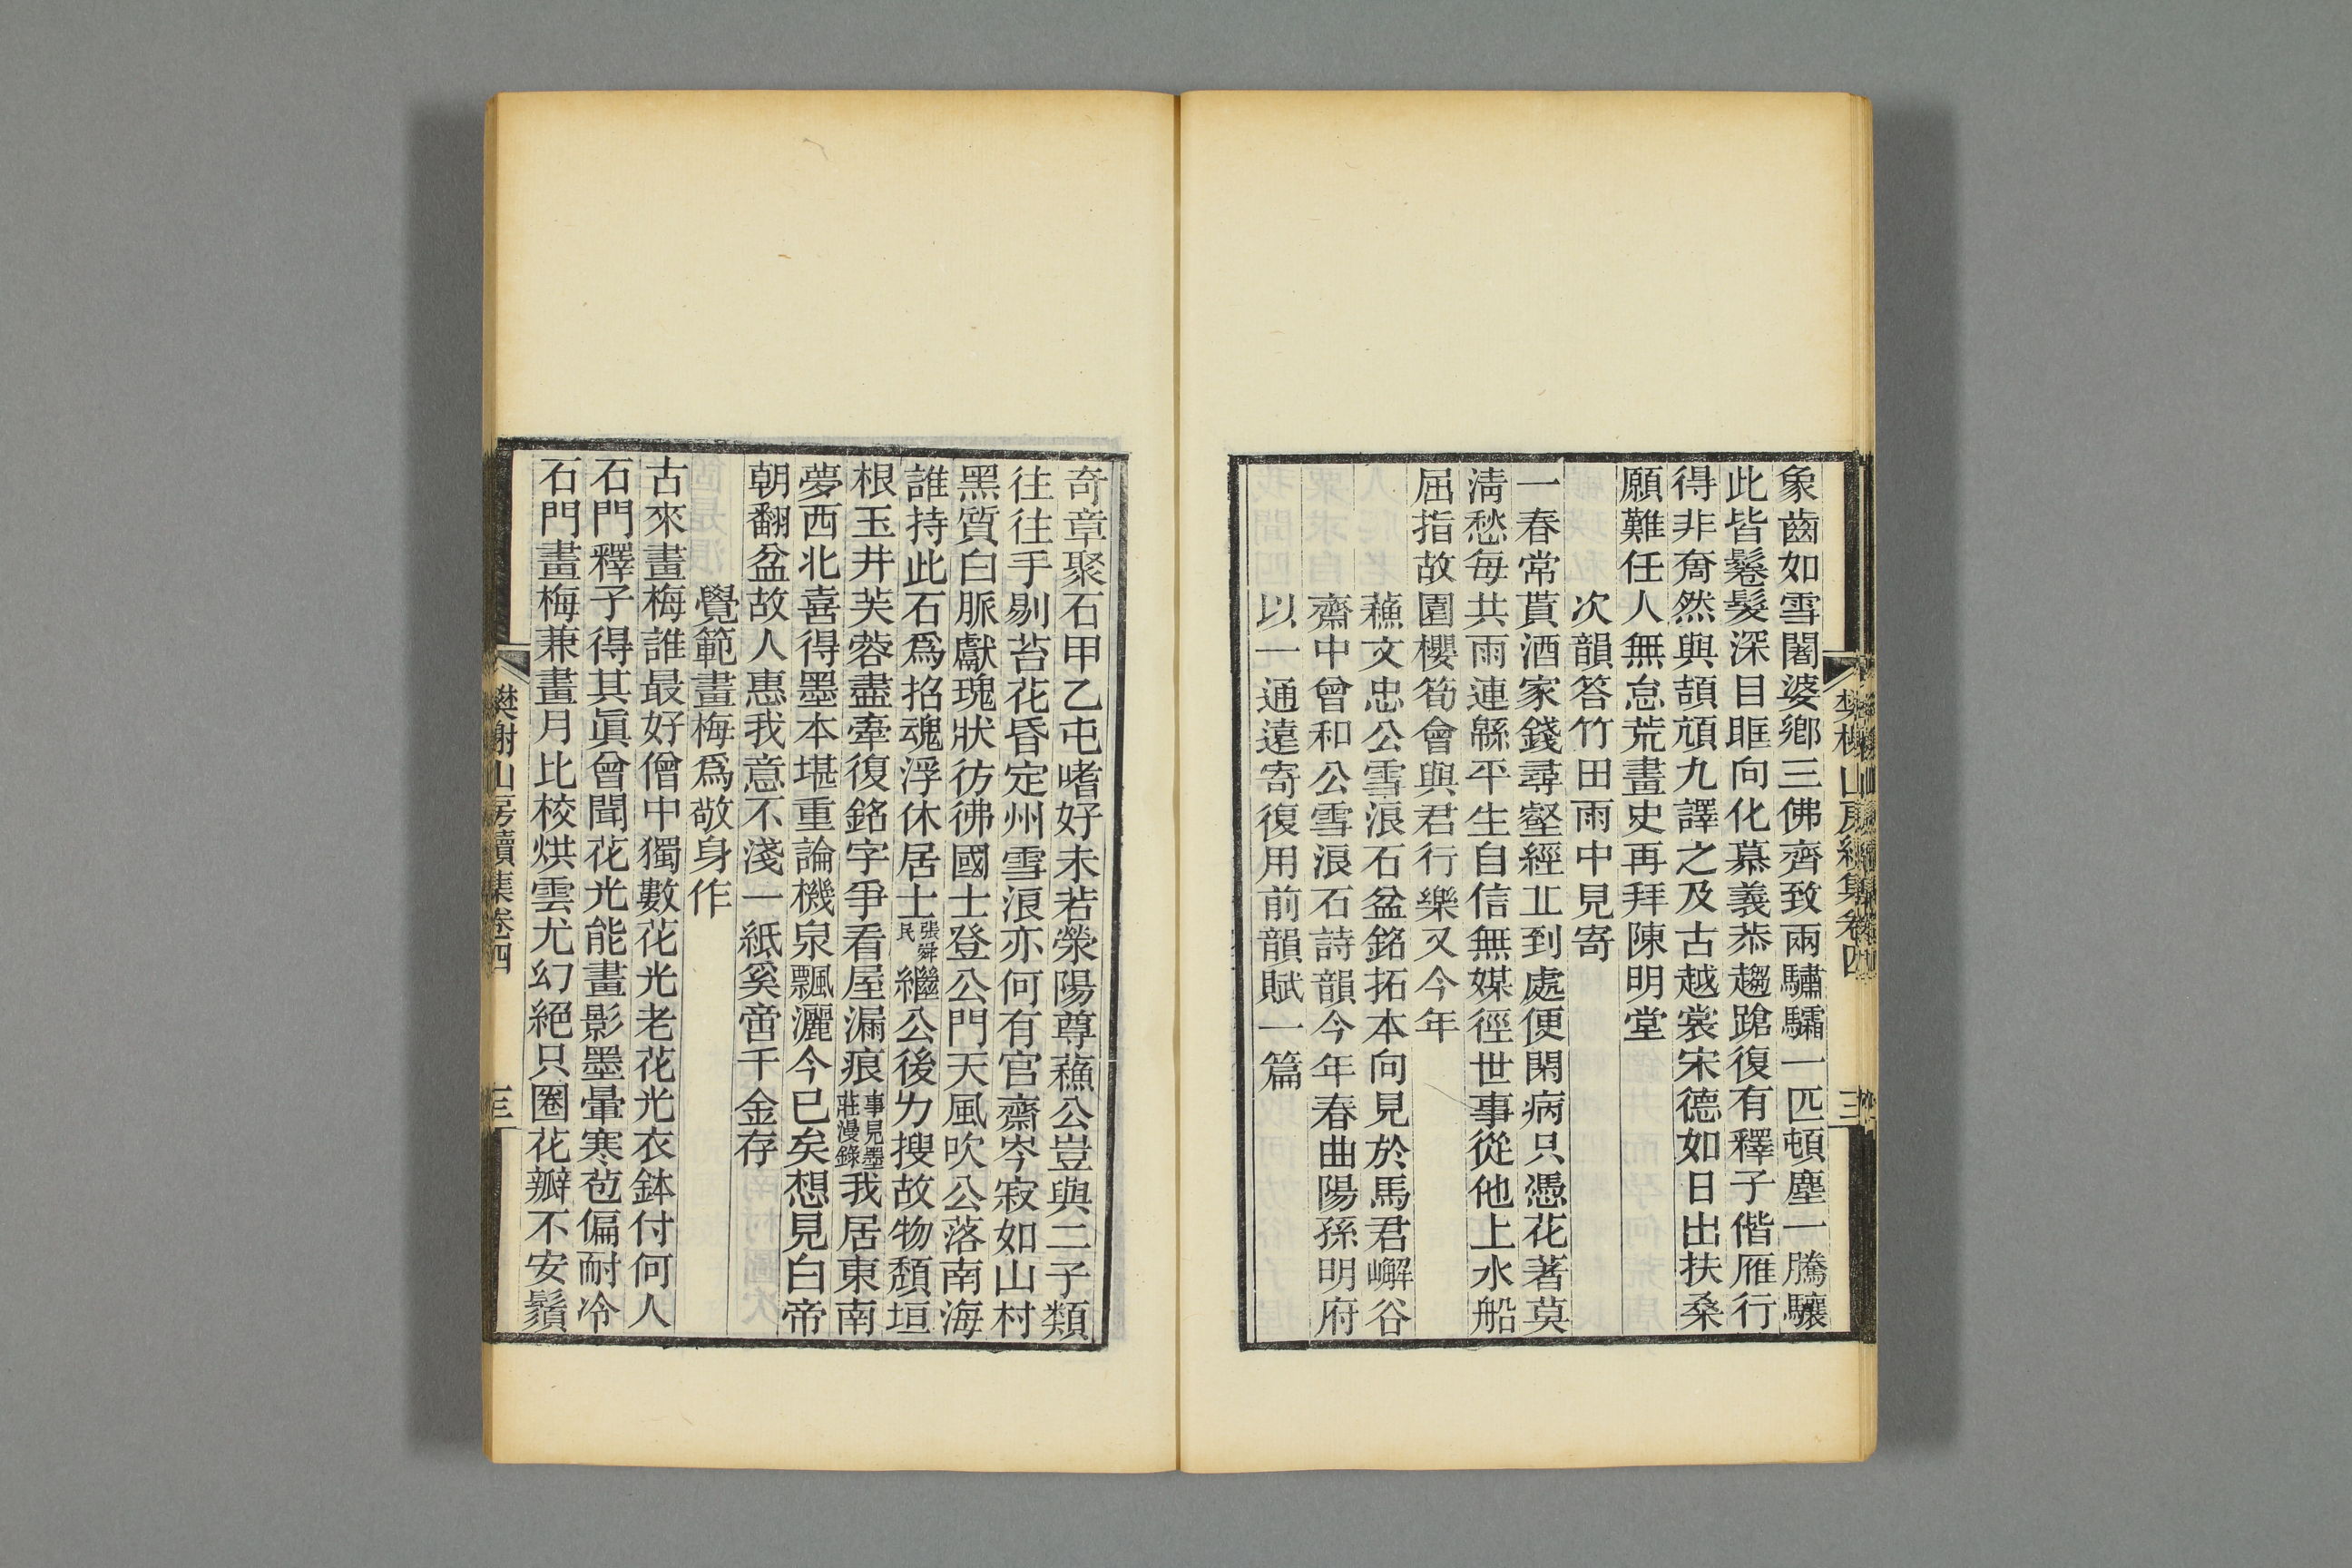 象齒如雪闍婆鄉三佛齊致兩驌驦一匹頓塵一騰驤
此皆鬈髮深目眶向化慕義恭趨蹌復有釋子偕雁行
得非奝然與頡頏九譯之及古越裳宋德如日出扶桑
願難任人無怠荒畫史再拜陳明堂
次韻答竹田雨中見寄
一春常貰酒家錢尋壑經丘到處便閑病只憑花著莫
淸愁每共雨連緜平生自信無媒徑世事從他上水船
屈指故園櫻筍會與君行樂又今年
蘓文忠公雪浪石盆銘拓本向見於馬君嶰谷
齋中曾和公雪浪石詩韻今年春曲陽孫明府
以一通遠寄復用前韻賦一篇
樊榭山房續集卷四
三
奇章聚石甲乙屯嗜好未若滎陽尊蘓公豈與二子類
往往手剔苔花昏定州雪浪亦何有官齋岑寂如山村
黑質白脈獻瑰狀彷彿國士登公門天風吹公落南海
誰持此石爲招魂浮休居士張舜民繼公後力搜故物頹垣
根玉井芙蓉盡牽復銘字爭看屋漏痕事見墨莊漫錄我居東南
夢西北喜得墨本堪重論機泉飄灑今已矣想見白帝
朝翻盆故人惠我意不淺一紙奚啻千金存
覺範畫梅爲敬身作
古來畫梅誰最好僧中獨數花光老花光衣鉢付何人
石門釋子得其眞曾聞花光能畫影墨暈寒苞偏耐冷
石門畫梅兼畫月比校烘雲尤幻絕只圈花瓣不安鬚
樊榭山房續集卷四
三